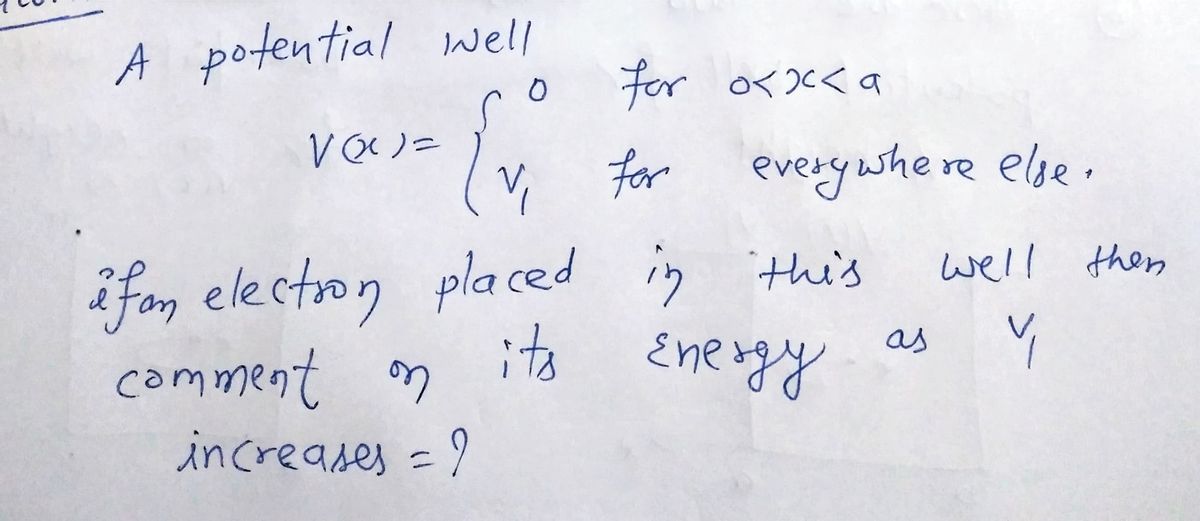 A potential well
V(x) = { 0 for 0<x<a
V₁ for everywhere else.
if an electron placed in this well then
comment on its energy as V₁
increases = ?